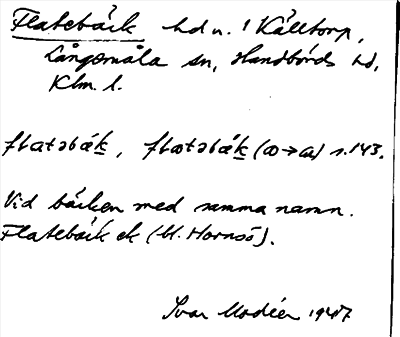 Flatebäck hd n. i Källtorp,
Långemåla sn, Handbörds hd,
Klm. l.
flatəbäk, flatəbäk (ɷ→a) s. 143.
Vid bäcken med samma namn.
Flatebäck ek (Hornsö).
Ivar Modéer 1947